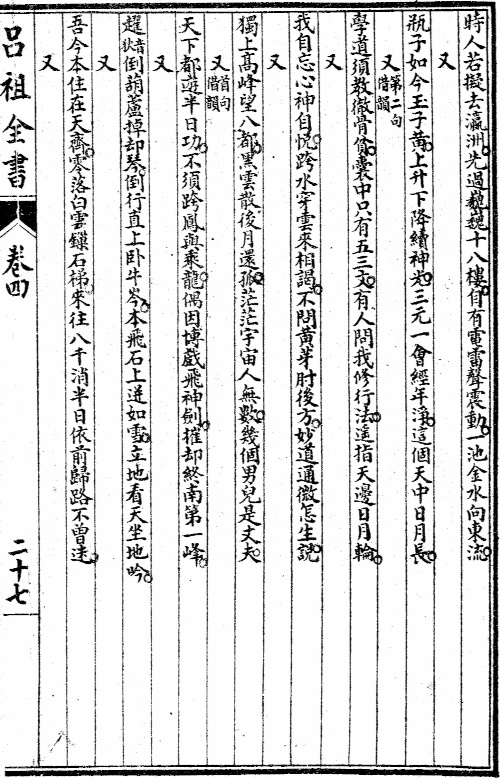 時人若擬去瀛洲先過巍巍十八樓自有電雷聲震動一池金水向東流
又
瓶子如今玉子黃上升下降續神光三元一會經年淨這個天中日月長
又第二句借韻
學道須教徹骨貧囊中只有五三文有人問我修行法遙指天邊日月輪
又
我自忘心神自悅跨水穿雲來相謁不問黃芽肘後方妙道通微怎生說
又
獨上高峰望八都黑雲散後月還孤茫茫宇宙人無數幾個男兒是丈夫
又首句借韻
天下都遊半日功不須跨鳳與乘龍偶因博戲飛神劍摧却終南第一峰
又
趯音狄倒葫蘆掉却琴倒行直上卧牛岑本飛石上迸如雪立地看天坐地吟
又
吾今本住在天齊零落白雲鏁石梯來往八千消半日依前歸路不曾迷
又
呂祖全書
卷四
二十七